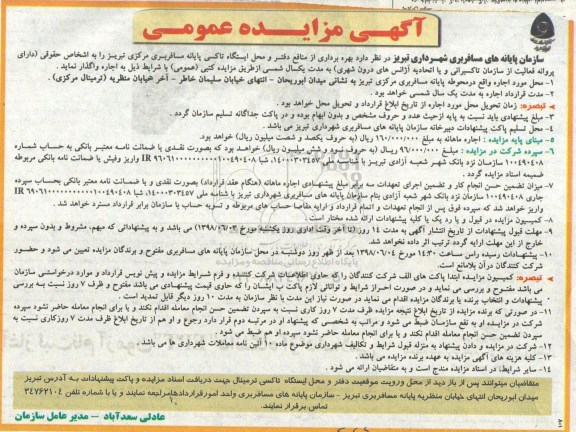 آگهی مزایده عمومی
سازمان پایانه های مسافربری شهرداری تبریز در نظر دارد بهره برداری از منافع دفتر و محل ایستگاه تاکسی پایانه مسافربری مرکزی تبریز را به اشخاص حقوقی (دارای
پروانه فعالیت از سازمان تاکسیرانی و یا اتحادیه آژانس های درون شهری) به مدت یکسال شمسی ازطریق مزایده کتبی (عمومی) با شرایط ذیل به اجاره واگذار نماید .
۱- محل مورد اجاره واقع درمحوطه پایانه مسافربری مرکزی تبریز به نشانی میدان ابوریحان - انتهای خیابان سلیمان خاطر - آخر خیابان منظریه (ترمینال مرکزی) .
۲- مدت قرارداد اجاره به مدت یک سال شمسی خواهد بود .
تبصره: زمان تحویل محل مورد اجاره از تاریخ ابلاغ قرارداد و تحویل محل خواهد بود .
۳- مبلغ پیشنهادی باید نسبت به پایه ازحیث عدد و حروف مشخص و بدون ابهام بوده و در پاکت جداگانه تسلیم سازمان گردد .
۴- محل تسلیم پاکت پیشنهادات دبیرخانه سازمان پایانه های مسافربری شهرداری تبریز می باشد .
۵- مبنای پایه مزایده : اجاره ماهانه به مبلغ ۱۶۰/۰۰۰/۰۰۰ ریال (به حروف یکصد و شصت میلیون ریال) خواهد بود.
۶- سپرده شرکت در مزایده : مبلغ ۹۶/۰۰۰/۰۰۰ ریال (به حروف نود و شش میلیون ریال) خواهد بود که بصورت نقدی یا ضمانت نامه معتبر بانکی به حساب شماره
۱۰۰۴۹۰۴۰۸ سازمان نزد بانک شهر شعبه آزادی تبریز با شناسه ملی ۱۴۰۰۰۳۰۳۴۵۷، شبا IR واریز وفیش یا ضمانت نامه بانکی مربوطه
ضمیمه اسناد مزایده گردد .
۷- میزان تضمین حسن انجام کار و تضمین اجرای تعهدات سه برابر مبلغ پیشنهادی اجاره ماهانه (هنگام عقد قرارداد) بصورت نقدی و یا ضمانت نامه معتبر بانکی بحساب سپرده
جاری ۱۰۰۴۹۰۴۰۸ سازمان نزد بانک شهر شعبه آزادی بنام سازمان پایانه های مسافربری شهرداری تبریز با شناسه ملی ۱۴۰۰۰۳۰۳۴۵۷، شبا IR
واریز خواهد شد که سپرده فوق پس از انجام تعهدات و اتمام قرارداد و ارایه مفاصا حساب های مربوطه و تسویه حساب با سازمان برابر قرارداد مسترد خواهد شد .
۸- کمیسیون مزایده در قبول و یا رد یک یا کلیه پیشنهادات ارائه شده مختار است .
۹- مهلت قبول پیشنهادات از تاریخ انتشار آگهی به مدت ۱۴ روز (تا آخر وقت اداری روز یکشنبه مورخ ۱۳۹۸/۰۶/۰۳) می باشد و به پیشنهاداتی که مبهم، مشروط و بدون سپرده و
خارج از این مهلت ارایه گردد ترتیب اثر داده نخواهد شد.
۱۰- پیشنهادات رسیده راس ساعت ۱۴:۳۰ مورخ ۱۳۹۸/۰۶/۰۴ بعد از ظهر روز دوشنبه در محل سازمان پایانه های مسافربری مفتوح و برندگان مزایده تعیین می شود و حضور
شرکت کنندگان درآن بلامانع است.
تبصره: کمیسیون مزایده ابتدا پاکت های الف شرکت کنندگان را که حاوی اطلاعات شرکت کننده و فرم شرایط مزایده و پیش نویس قرارداد و موارد درخواستی سازمان
می باشد مفتوح و بررسی می نماید و در صورت احراز شرایط و توانائی لازم پاکت ب ایشان را که حاوی قیمت پیشنهادی می باشد مفتوح و ظرف ۷ روز نسبت به بررسی
پیشنهادات و انتخاب برنده یا برندگان مزایده اقدام می نماید در صورت نیاز این مدت با نظر سازمان به مدت ۱۰ روز دیگر قابل تمدید است .
۱۱- در صورتی که برنده مزایده از تاریخ ابلاغ نتیجه مزایده ظرف مدت ۷ روز کاری نسبت به سپردن تضمین حسن انجام معامله اقدام نکند و یا برای انجام معامله حاضر نشود سپرده
شرکت در مزایده او به نفع سازمان ضبط می شود و مراتب به شخصی که پیشنهاد او در مرتبه دوم قرار دارد رجوع و او هم از تاریخ ابلاغ ظرف مدت ۷ روزکاری نسبت به
سپردن تضمین حسن انجام معامله اقدام نکند و یا برای انجام معامله حاضر نشود سپرده او هم ضبط می شود .
۱۲- شرکت در مزایده و دادن پیشنهاد به منزله قبول شرایط و تکالیف شهرداری موضوع ماده ۱۰ آئین نامه معاملات شهرداری ها می باشد .
۱۳- کلیه هزینه های آگهی مزایده به عهده برنده مزایده می باشد.
۱۴- سایر شرایط، در اسناد مزایده مندج است و به متقاضیان ارائه می شود .
متقاضیان میتوانند پس از باز دید از محل ورویت موقعیت دفتر و محل ایستگاه تاکسی ترمینال جهت دریافت اسناد مزایده و پاکت پیشنهادات به آدرس تبریز
میدان ابوریحان انتهای خیابان منظریه پایانه مسافربری تبریز - سازمان پایانه های مسافربری واحد امورقراردادهامراجعه نمایند و یا با شماره تلفن ۳۴۷۶۲۱۰۴
تماس برقرار نمایند.
عادلی سعدآباد – مدیر عامل سازمان